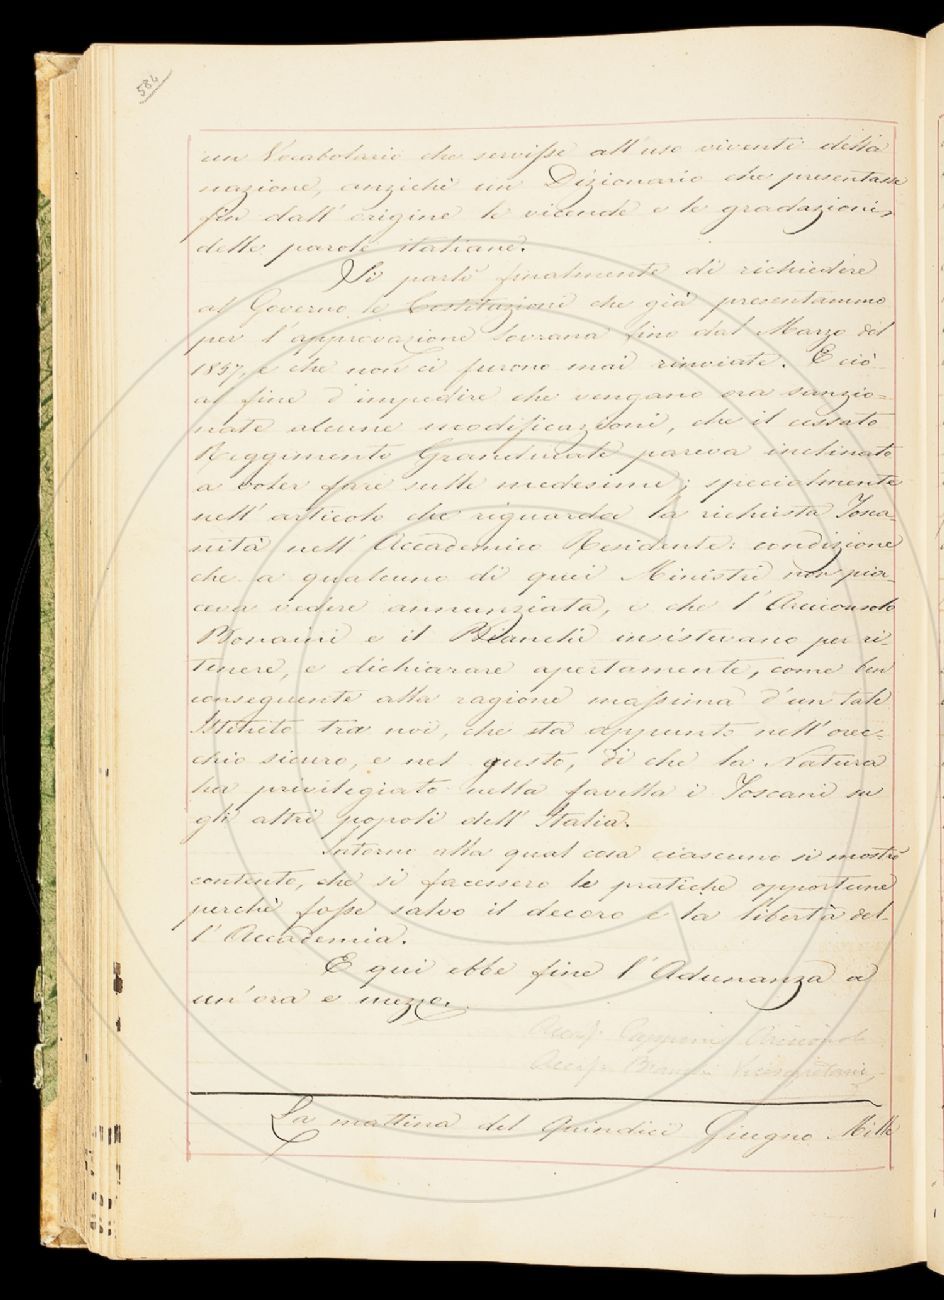 584
un Vocabolario che servisse all'uso vivente della
nazione, anzichè un Dizionario che presentasse
fin dall'origine le vicende e le gradazioni
delle parole italiane.
Si parlò finalmente di richiedere
al Governo le Costituzioni che già presentammo
per l'approvazione Sovrana fino dal Marzo del
1857, e che non ci furono mai rinviate. E ciò
al fine d'impedire che vengano ora sanzio=
nate alcune modificazioni, che il cessato
Reggimento Granducale pareva inclinato
a voler fare sulle medesime; specialmente
nell'articolo che riguarda la richiesta Tosca-
nità nell'Accademico Residente: condizione
che a qualcuno di quei Ministri non pia-
ceva vedere annunziata, e che l'Arciconsolo
Bonaini e il Bianchi insistevano per ri-
tenere, e dichiarare apertamente, come ben
conseguente alla ragione massima d'un tale
Istituto tra noi, che sta appunto nell'orec-
chio sicuro, e nel gusto, di che la Natura
ha privilegiato nella favella i Toscani su
gli altri popoli dell'Italia.
Intorno alla qual cosa ciascuno si mostrò
contento, che si facessero le pratiche opportune
perchè fosse salvo il decoro e la libertà del-
l'Accademia.
E qui ebbe fine l'Adunanza a
un'ora e mezzo.
Arciconsolo
Vicesegretario
La mattina del Quindici Giugno Mille